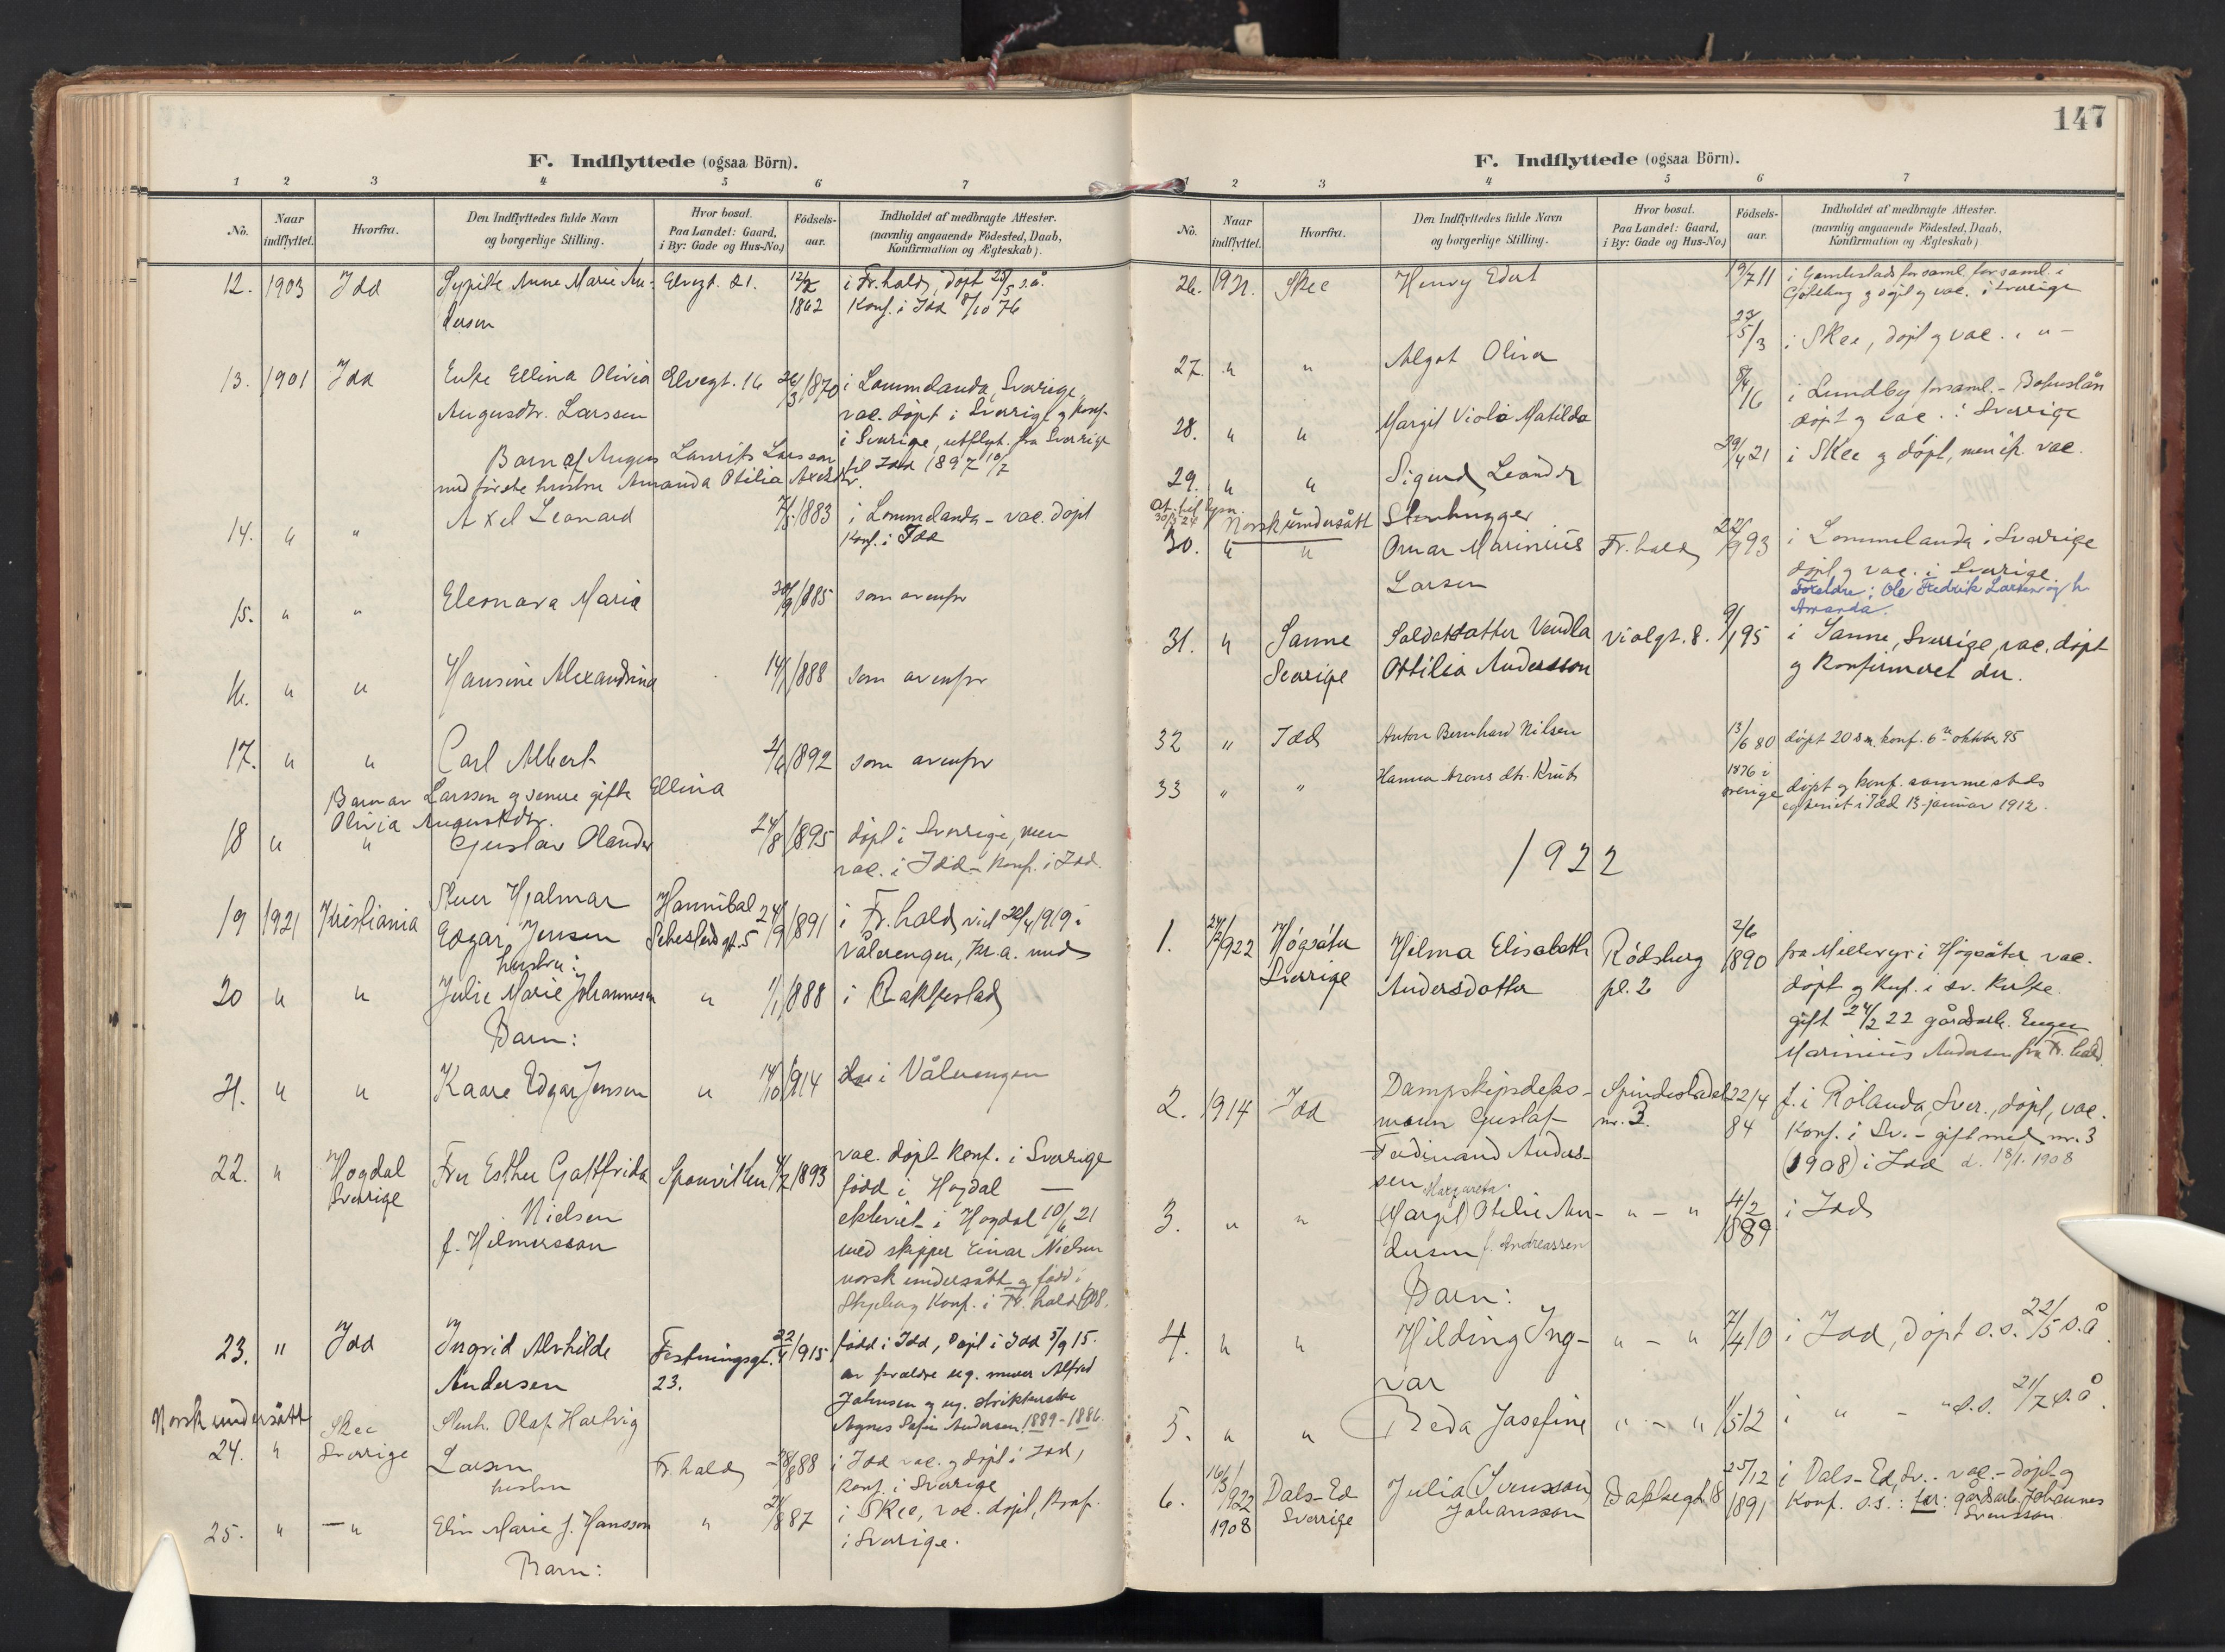 147
F. Indflyttede (ogsaa Börn).
1 2 3 4 5 6 7
No. Naar indflyttet. Hvorfra. Den Indflyttedes fulde Navn og borgerlige Stilling. Hvor bosat. Paa Landet: Gaard, i By: Gade og Hus-No.) Födsels-aar. Indholdet af medbragte Attester. (navnlig angaaende Födested, Daab, Konfirmation og Ægteskab).
12. 1903 Idd Sypike Anne Marie An- Elvegt. 21. 1862 i Fr.hald, døpt 25/5 s.å.
dersen Konf. i Idd 8/10 76
13. 1901 Idd Enke Ellina Olivia Elvegt. 16 26/3 1870 i Lommelanda, Sverige,
Augustdtr. Larssen vac. døpt i Sverige og konf.
i Sverige, utflyt. fra Sverige
Barn af August Laurits Larsson til Idd 1897 10/7
med første hustru Amanda Otilia Axelsdtr.
14. " " Axel Leonard 1883 i Lommelanda - vac. døpt
Konf. i Idd
15. " " Eleonora Maria 1885 som ovenfor
16. " " Hansine Alexandrina 1888 som ovenfor
17. " " Carl Albert 1892 som ovenfor
Barn av Larsson og senere gifte Ellina
Olivia Augustdtr.
18 " " Gustav Olander 24/8 1895 døpt i Sverige, men
vac. i Idd - Konf. i Idd.
19 1921 Kristiania Stuer Hjalmar Hannibal 24/9 1891 i Fr.hald, viet 20/4 1919 i
Edgar Jensen Sehesteds gt. 5 Vålerengen, Kr.a. med
hustru:
20 " " Julie Marie Johannesen " 1/1 1888 i Rakkestad
Barn:
21. " " Kaare Edgar Jensen " 14/10 1914 i Vålerengen
22. " Hogdal Sverige Fru Esther Gottfrida Sponviken 1893 vac. døpt Konf. i Sverige
Nielsen født i Hogdal —
f. Hilmersson ekteviet i Hogdal 10/6 21
med skipper Einar Nielsen
norsk undersått og född i
Skjeberg Konf. i Fr.hald 1908.
23. " Idd Ingrid Alvhilde Festningsgt. 22/4 1915 född i Idd, døpt i Idd 5/9 15.
Andersen 23. av foreldre ug. murer Alfred
Johnsen og ug. strikkerske
Agnes Sofie Andersen. 1889 - 1886.
Norsk undersått
24. " Skee Sverige Stenh. Olaf Hartvig Larsen Fr.hald 28/8 88 i Idd vac. og døpt i Idd,
hustru Konf. i Sverige
25. " — " Elin Marie f. Hansson " 87 i Skee, vac. døpt, Konf.
i Sverige.
Barn:
F. Indflyttede (ogsaa Börn).
1 2 3 4 5 6 7
No. Naar indflyttet. Hvorfra. Den Indflyttedes fulde Navn og borgerlige Stilling. Hvor bosat. Paa Landet: Gaard, i By: Gade og Hus-No.) Födsels-aar. Indholdet af medbragte Attester. (navnlig angaaende Födested, Daab, Konfirmation og Ægteskab)
26. 1921. Skee Henry Edert 19/7 11 i Gamlestads forsaml. i
Göteborg og døpt og vac. i Sverige
27. " " Algot Oliva i Skee, døpt og vac. i " -
28. " " Margit Viola Matilda 8/4 16 i Lundby forsaml. - Bohuslän
døpt og vac. i Sverige
29. " " Sigurd Leander 29/4 21 i Skee og døpt, men ik. vac.
Norsk undersått Stenhugger
30. " " Omar Marinius Fr.hald 22/9 93 i Lommelanda i Sverige
Larsen døpt og vac. i Sverige.
Foreldre: Ole Fredrik Larsen og h.
Amanda.
31. " Sanne Sverige Soldatdatter Vendla Violgt. 8. 9/1 95 i Sanne, Sverige, vac. døpt
Ottilia Andersson og konfirmeret der.
32 " Idd Anton Bernhard Nilsen 13/6 80 døpt 20 s.m. konf. 6te oktober 95
33 " " Hanna Arons dtr. Krut 1876 i Sverige døpt og konf. sammesteds
egteviet i Idd 13 januar 1912.
1922
1. 24/2 1922 Högsäter Sverige Hilma Elisabeth Rødsberg 2/6 1890 fra i Högsäter vac.
Andersdotter pl. 2 døpt og Konf. i sv. kirke.
gift 24/2 22 gårdsarb. Eugen
Marinius Andersen fra Fr.hald
2. 1914 Idd Dampskipsdeks- Spindestadet 22/4 f. i Rölanda, Sver., døpt, vac.
mann Gustaf nr. 3. 84 Konf. i Sv. - gift med nr. 3
Ferdinand Anders- (1908) i Idd d. 18/1. 1908
sen
3. " " Margareta. (Margit) Otelie An- " - " 4/2 1889 i Idd
dersen f. Andreassen
Barn:
4. " " Hilding Ing- " - " 7/4 10 i Idd, døpt s.s. 22/5 s.å.
var
5. " " Beda Josefine " - " 1/5 12 i " - " s.s. 21/7 s.å.
6. 16/3 1922 1908 Dals-Ed Sverige Julia (Svensson) Bakkegt. 18 25/12 1891 i Dals-Ed, Sv. - vac. - døpt og
Johansson Konf. s.s.: far: gårdsarb. Johannes
Svensson